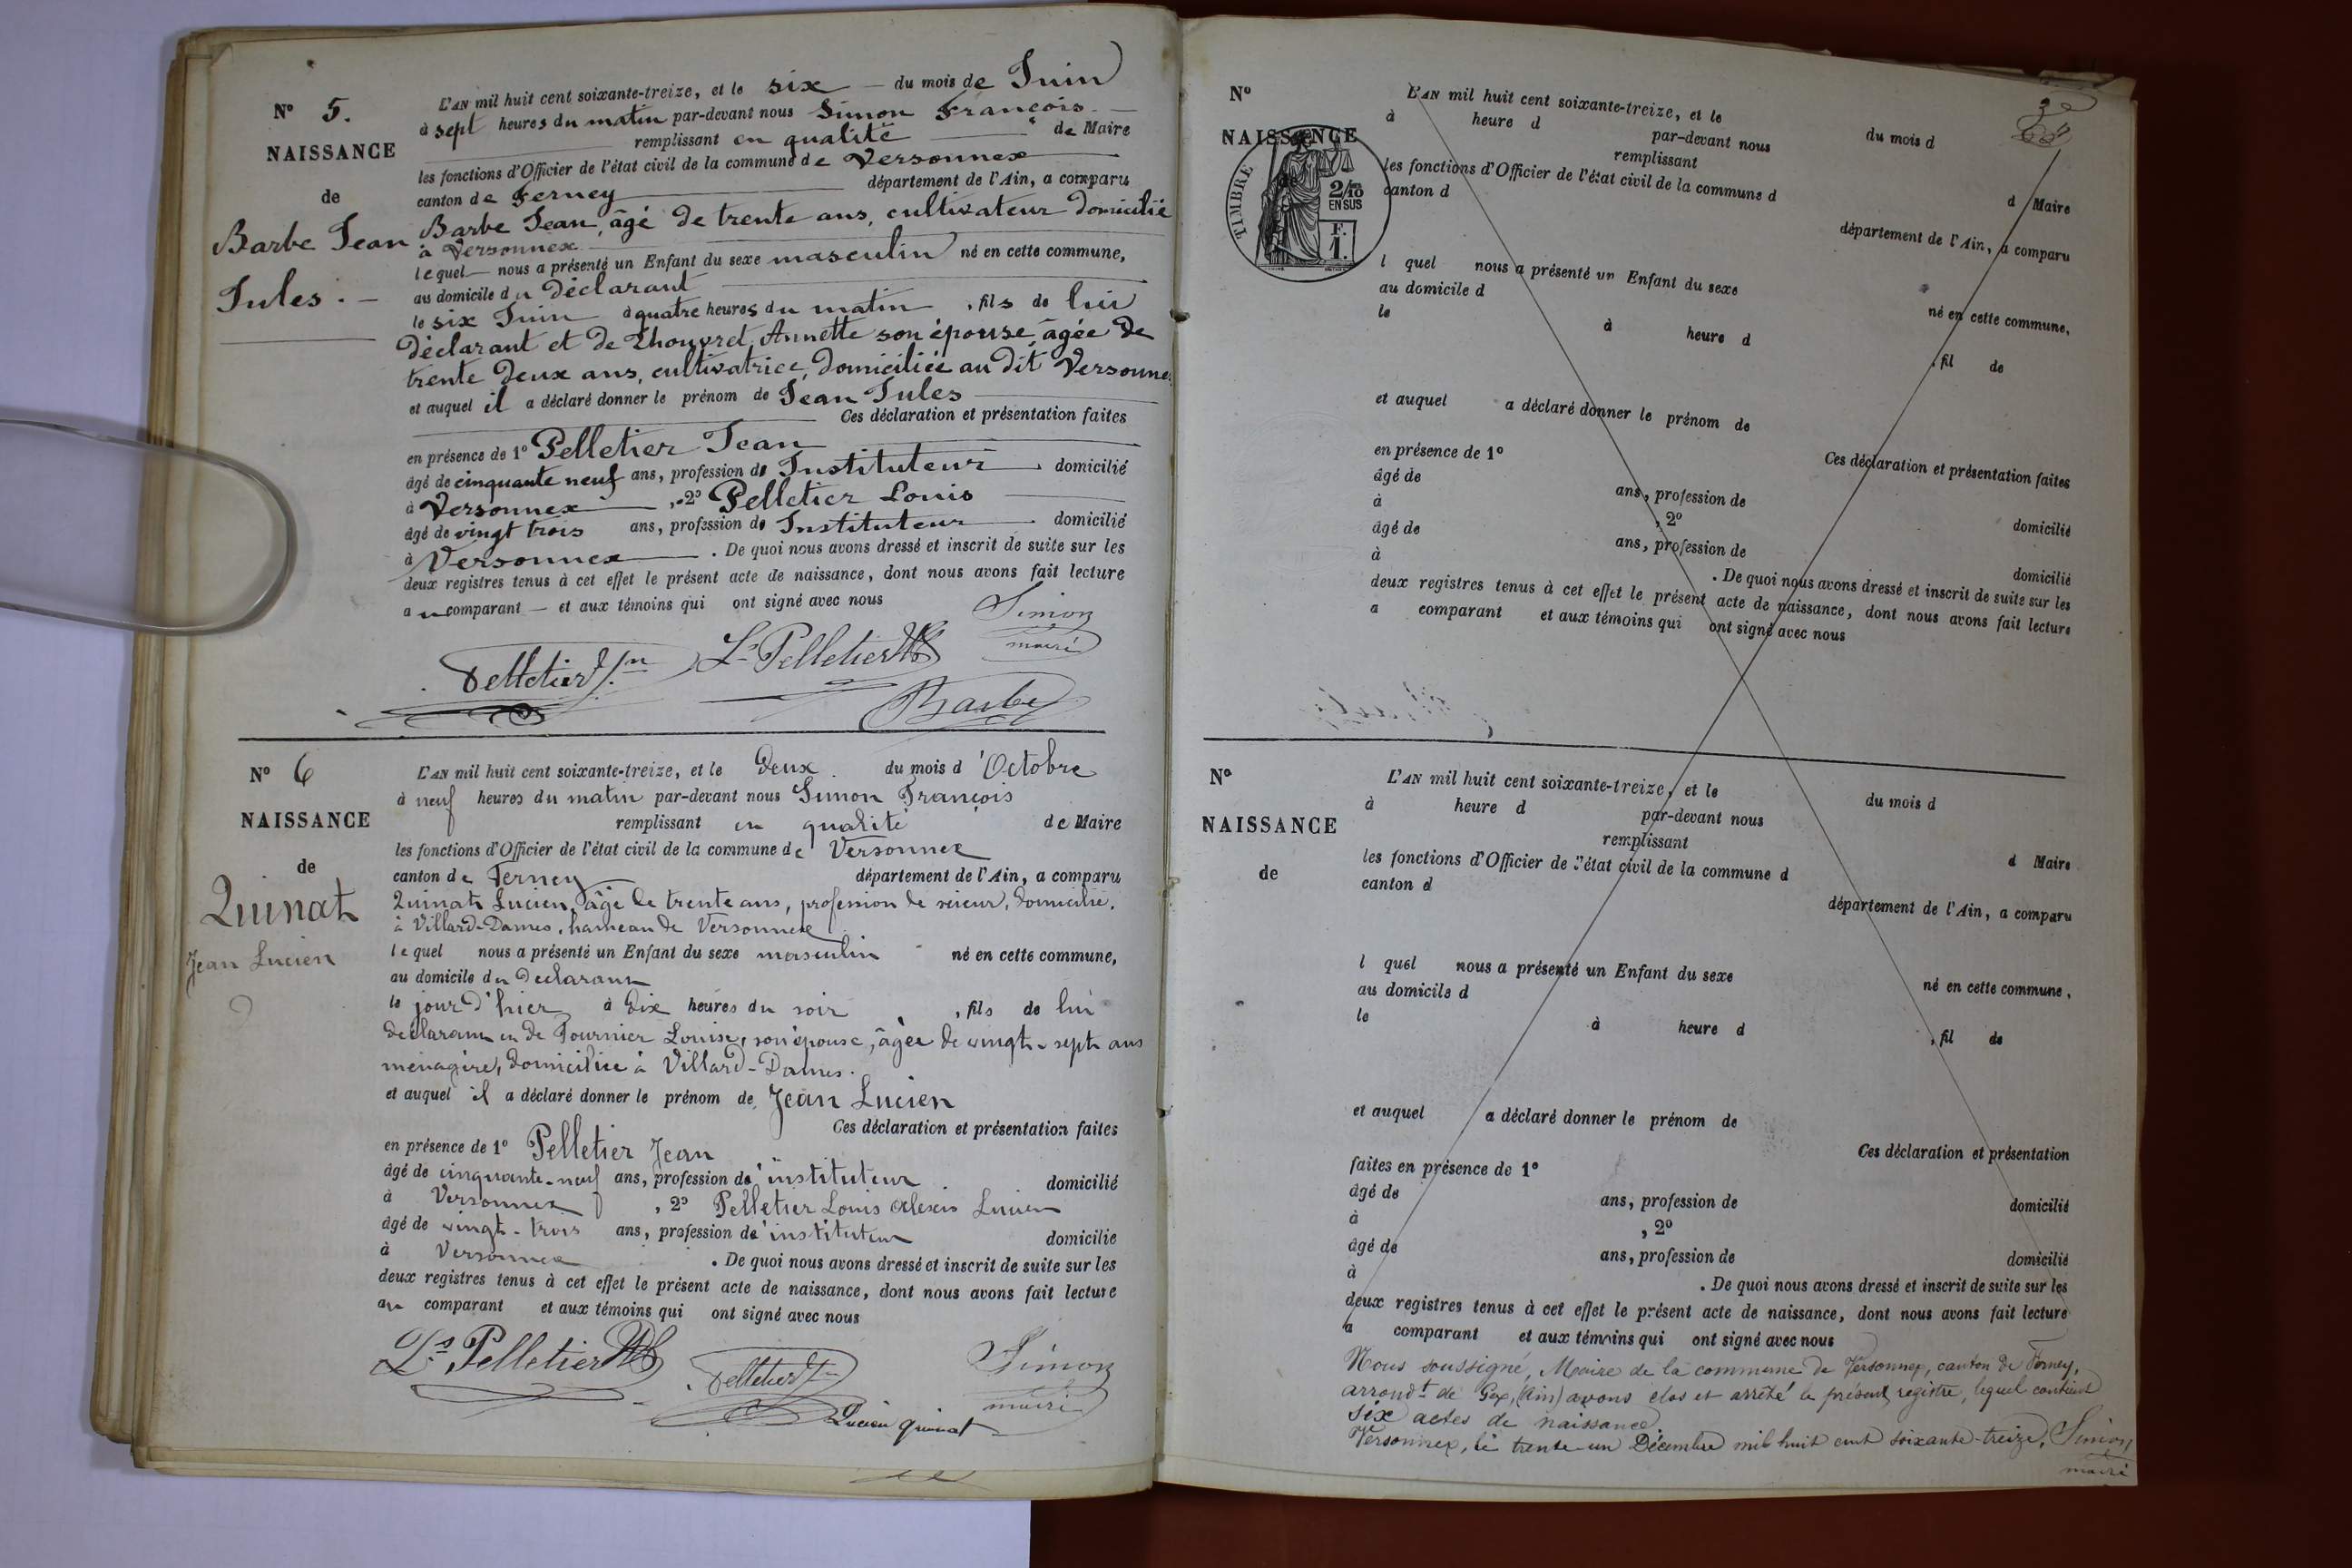 N° 5.
NAISSANCE
de
Barbe Jean
Jules. —
L'AN mil huit cent soixante-treize, et le six — du mois de Juin
à sept heures du matin par-devant nous Simon François
remplissant en qualité de Maire
les fonctions d'Officier de l'état civil de la commune de Versonnex
canton de Ferney département de l'Ain, a comparu
Barbe Jean, âgé de trente ans, cultivateur domicilié
à Versonnex
lequel — nous a présenté un Enfant du sexe masculin né en cette commune,
au domicile du déclarant
le six Juin à quatre heures du matin , fils de lui
déclarant et de Annette son épouse, âgée de
trente deux ans, cultivatrice, domiciliée au dit Versonnex
et auquel il a déclaré donner le prénom de Jean Jules
Ces déclaration et présentation faites
en présence de 1° Pelletier Jean
âgé de cinquante neuf ans, profession de Instituteur domicilié
à Versonnex , 2° Pelletier Louis
âgé de vingt trois ans, profession de Instituteur domicilié
à Versonnex . De quoi nous avons dressé et inscrit de suite sur les
deux registres tenus à cet effet le présent acte de naissance, dont nous avons fait lecture
au comparant — et aux témoins qui ont signé avec nous
Simon
maire
Pelletier Jn
Ls Pelletier
Barbe
N° 6
NAISSANCE
de
Quinat
Jean Lucien
L'AN mil huit cent soixante-treize, et le deux du mois d'Octobre
à neuf heures du matin par-devant nous Simon François
remplissant en qualité de Maire
les fonctions d'Officier de l'état civil de la commune de Versonnex
canton de Ferney département de l'Ain, a comparu
Quinat Lucien, âgé de trente ans, profession de scieur, domicilié,
à Villard-Dames, hameau de Versonnex
lequel nous a présenté un Enfant du sexe masculin né en cette commune,
au domicile du déclarant
le jour d'hier à dix heures du soir , fils de lui
déclarant et de Fournier Louise, son épouse, âgée de vingt-sept ans
ménagère, domiciliée à Villard-Dames.
et auquel il a déclaré donner le prénom de Jean Lucien
Ces déclaration et présentation faites
en présence de 1° Pelletier Jean
âgé de cinquante-neuf ans, profession de instituteur domicilié
à Versonnex , 2° Pelletier Louis Alexis Lucien
âgé de vingt-trois ans, profession de instituteur domicilié
à Versonnex . De quoi nous avons dressé et inscrit de suite sur les
deux registres tenus à cet effet le présent acte de naissance, dont nous avons fait lecture
au comparant et aux témoins qui ont signé avec nous
Ls Pelletier
Pelletier Jn
Simon
maire
Lucien quinat
N°
NAISSANCE
de
TIMBRE
2/10
EN SUS
F.
1.
L'AN mil huit cent soixante-treize, et le du mois d
à heure d par-devant nous
remplissant d Maire
les fonctions d'Officier de l'état civil de la commune d
canton d département de l'Ain, a comparu
l quel nous a présenté un Enfant du sexe né en cette commune,
au domicile d
le à heure d , fil de
et auquel a déclaré donner le prénom de
Ces déclaration et présentation faites
en présence de 1°
âgé de ans, profession de domicilié
à , 2°
âgé de ans, profession de domicilié
à . De quoi nous avons dressé et inscrit de suite sur les
deux registres tenus à cet effet le présent acte de naissance, dont nous avons fait lecture
a comparant et aux témoins qui ont signé avec nous
N°
NAISSANCE
de
L'AN mil huit cent soixante-treize, et le du mois d
à heure d par-devant nous
remplissant d Maire
les fonctions d'Officier de l'état civil de la commune d
canton d département de l'Ain, a comparu
l quel nous a présenté un Enfant du sexe né en cette commune,
au domicile d
le à heure d , fil de
et auquel a déclaré donner le prénom de
Ces déclaration et présentation
faites en présence de 1°
âgé de ans, profession de domicilié
à , 2°
âgé de ans, profession de domicilié
à . De quoi nous avons dressé et inscrit de suite sur les
deux registres tenus à cet effet le présent acte de naissance, dont nous avons fait lecture
a comparant et aux témoins qui ont signé avec nous
Nous soussigné, Maire de la commune de Versonnex, canton de Ferney,
arrondt de Gex, (Ain) avons clos et arrêté le présent registre, lequel contient
six actes de naissance
Versonnex, le trente-un Décembre mil huit cent soixante-treize, Simon
maire